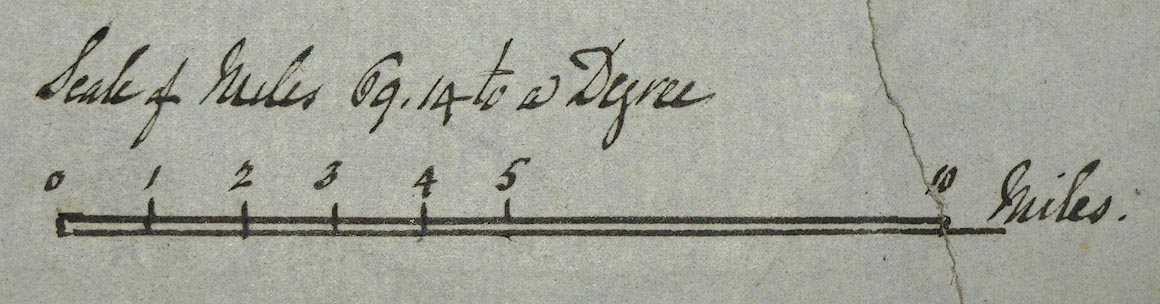 Scale of Miles 69.14 to a Degree
0 1 2 3 4 5 10 Miles.